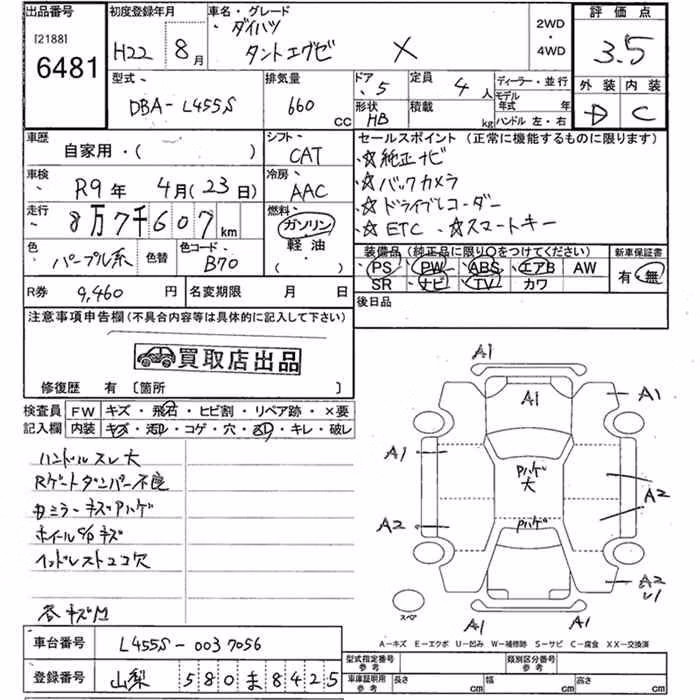 出品番号 初度登録年月 車名・グレード 2WD・4WD 評価点
[2188] 6481 H22 8月 ダイハツ タントエグゼ X 3.5
型式 排気量 ドア 5 定員 4人 ディーラー・並行 外装 内装
DBA-L455S 660 CC 形状 HB 積載 kg モデル年式 年 ハンドル 左・右 D C
車歴 自家用・( ) シフト CAT セールスポイント (正常に機能するものに限ります)
車検 R9年 4月(23日) 冷房 AAC ☆純正ナビ
☆バックカメラ
走行 8万7千607km 燃料 ガソリン ☆ドライブレコーダー
軽油 ☆ETC ☆スマートキー
色 パープル系 色替 色コード B70 ( ) 装備品 (純正品に限り○をつけてください) 新車保証書
PS PW ABS エアB AW 有・無
R券 9,460円 名変期限 月 日 SR ナビ TV カワ
注意事項申告欄(不具合内容等は具体的に記入して下さい) 後日品
買取店出品
修復歴 有 [箇所 ]
検査員 FW キズ・飛石・ヒビ割・リペア跡・×要
記入欄 内装 キズ・汚れ・コゲ・穴・凹・キレ・破レ
ハンドルスレ大
Rゲートダンパー不良
ホイールC/Pキズ
ヘッドレストココ穴
各キズM
A1
A1
A1
A1
Pハゲ
大
A2
A2
Pハゲ
A2
U1
スペア
A1 A1
A-キズ E-エクボ U-凹み W-補修跡 S-サビ C-腐食 XX-交換済
車台番号 L455S-0037056 型式指定番号 参考 類別区分番号 参考
登録番号 山梨 580ま8425 車庫証明用 参考 長さ cm 幅 cm 高さ cm